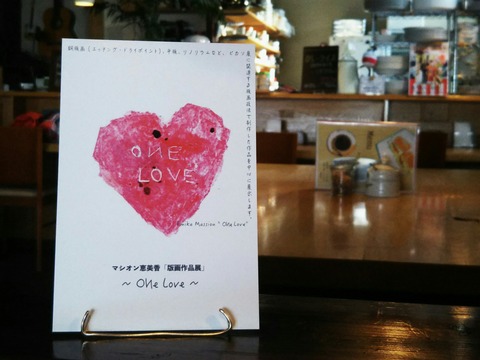 銅版画(エッチング・ドライポイント)、平版、リノリウムなど、
に関連する版画技法で制作した作品を中心に展示します。
ONE
LOVE
Emiko Massion "One Love"
マシオン恵美香「版画作品展」
～ One Love ～